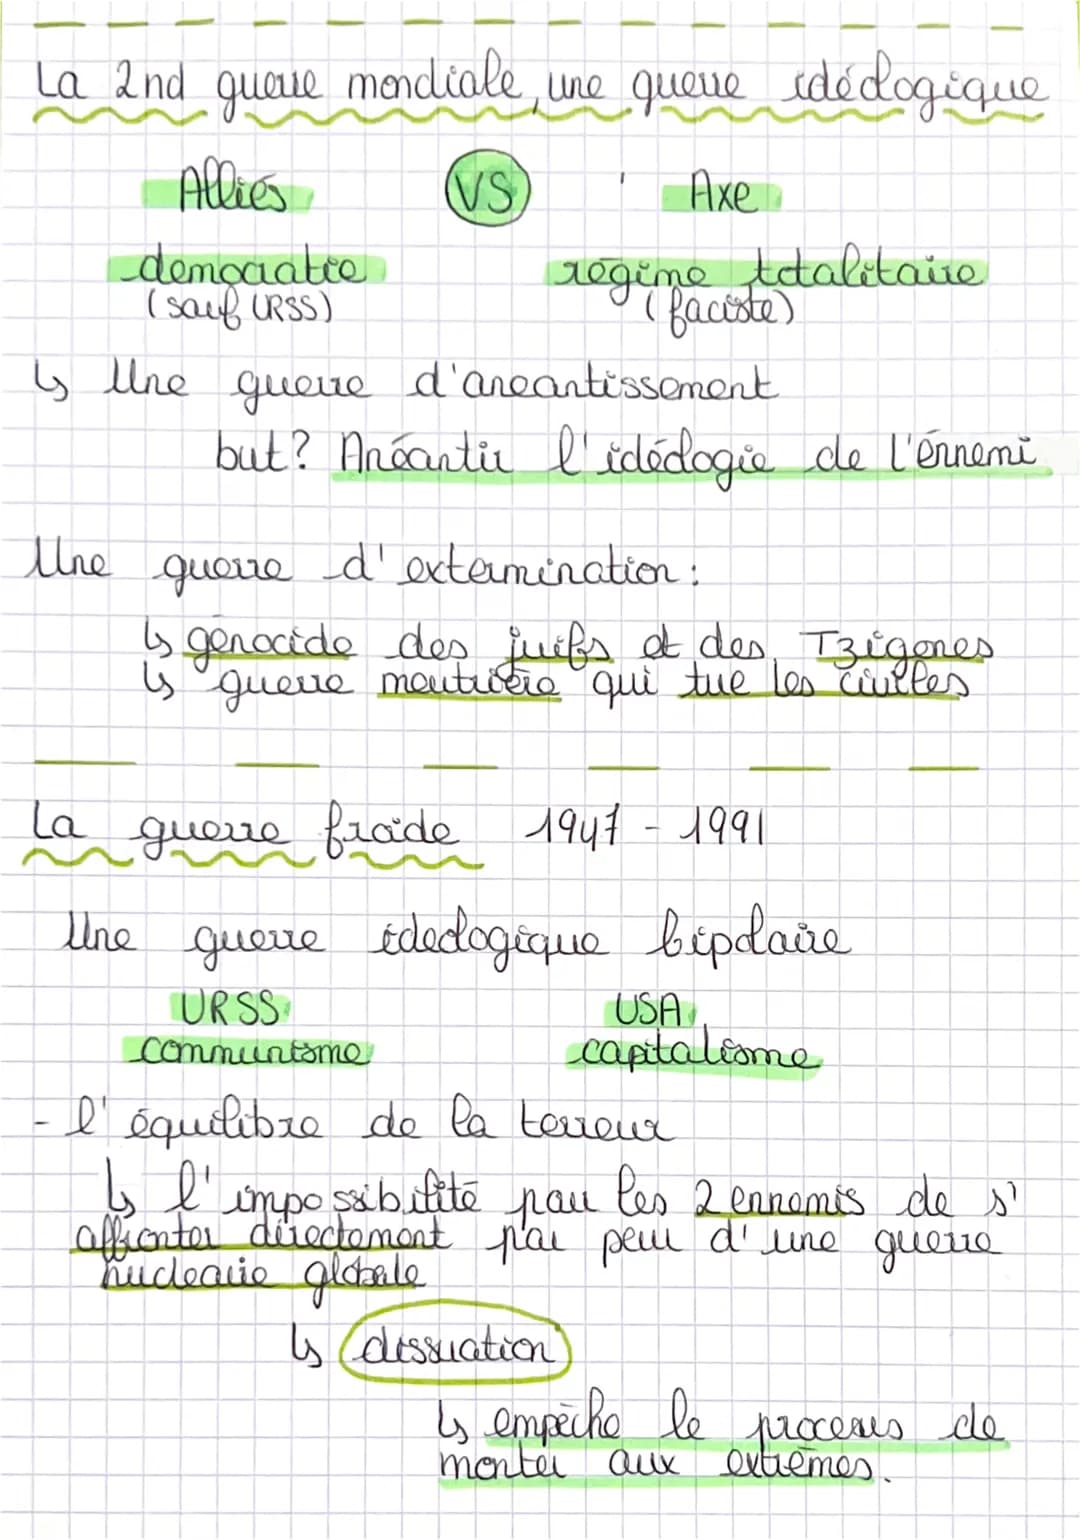 La 2nd guerre mondiale, une guerre idéologique
Alliés VS Axe
démocratie régime totalitaire
(sauf URSS) (faciste)
↳ Une guerre d'anéantissement
but? Anéantir l'idéologie de l'énnemi
Une guerre d'extermination :
↳ génocide des juifs et des Tziganes
↳ guerre meutrière qui tue les civiles
La guerre froide 1947 - 1991
Une guerre idéologique bipolaire
URSS USA
communisme capitalisme
- l'équilibre de la terreur
↳ l'impossibilité pour les 2 ennemis de s'
affronter directement par peur d'une guerre
nucléaire globale
↳ dissuation
↳ empêche le procerus de
monter aux extrêmes.